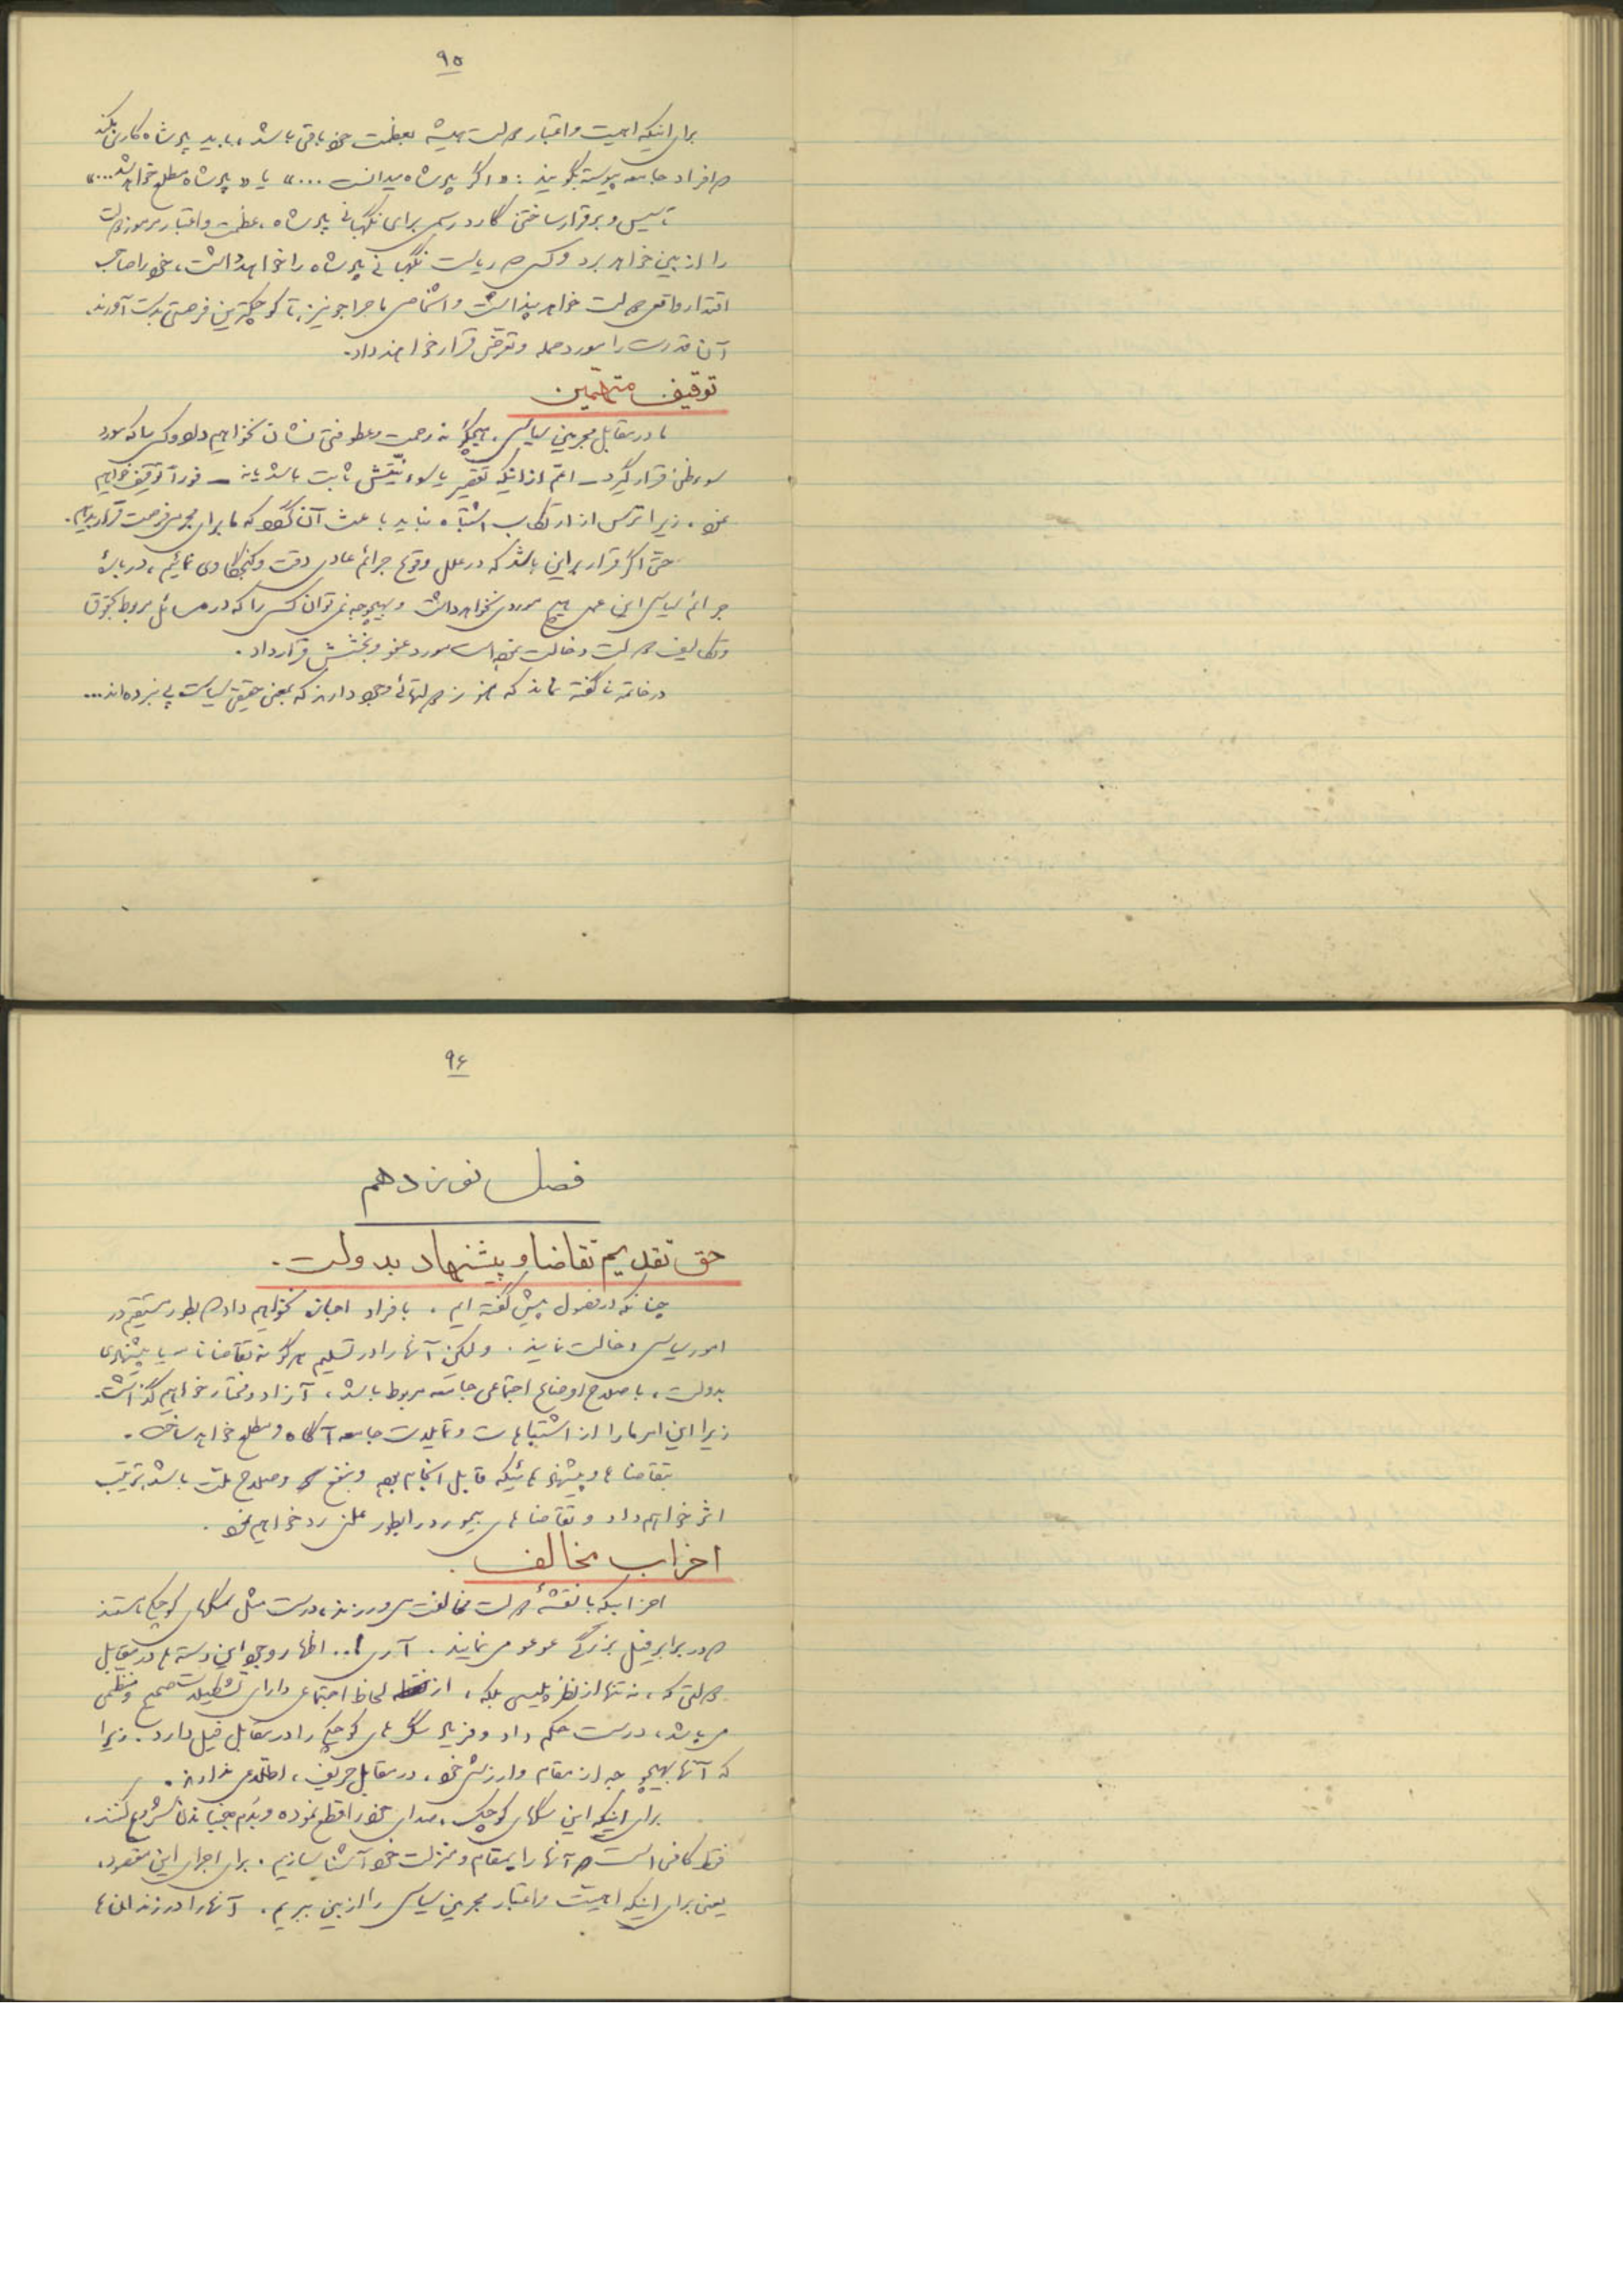 ۹۵
برای اینکه اهمیت و اعتبار دولت همیشه بعظمت خود باقی باشد، باید پادشاه کاری بکند
که افراد جامعه پیوسته بگویند: «اگر پادشاه میدانست ...» یا «پادشاه مطلع خواهد شد...»
تأسیس و برقرار ساختن گارد رسمی برای نگهبانی پادشاه، عظمت و اعتبار مرموز دولت
را از بین خواهد برد و کسی که ریاست نگهبانی پادشاه را خواهد داشت، خود را صاحب
اقتدار واقعی دولت خواهد پنداشت و اشخاص ماجراجو نیز، تا کوچکترین فرصتی بدست آورند.
آن قدرت را مورد حمله و تعرض قرار خواهند داد.
توقیف متهمین
ما در مقابل مجرمین سیاسی، هیچگونه رحمت و عطوفتی نشان نخواهیم داد و کسی را که مورد
سوءظن قرار گیرد – اعم از اینکه تقصیر یا سوء نیتش ثابت باشد یا نه – فوراً توقیف خواهیم
نمود، زیرا ترس از ارتکاب اشتباه نباید باعث آن گردد که ما برای مجرمی فرصت فرار بدهیم.
حتی اگر قرار براین باشد که در علل وقوع جرائم عادی دقت و کنجکاوی نمائیم، در بارۀ
جرائم سیاسی این عمل هیچ موردی نخواهد داشت و بهیچوجه نمیتوان کسی را که در مسائل مربوط بحقوق
و تکالیف دولت دخالت نموده است مورد عفو و بخشش قرار داد.
در خاتمه ناگفته نماند که هنوز دولتهائی وجود دارند که بمعنی حقیقی سیاست پی نبرده‌اند...
۹۶
فصل نوزدهم
حق تقدیم تقاضا و پیشنهاد بدولت.
چنانکه در فصول پیش گفته ایم، بافراد اجازه نخواهیم داد که بطور مستقیم در
امور سیاسی دخالت نمایند. ولیکن آنها را در تسلیم هرگونه تقاضانامه یا پیشنهادی
بدولت، باصلاح اوضاع اجتماعی جامعه مربوط باشد، آزاد و مختار خواهیم گذاشت.
زیرا این امر ما را از اشتباهات و تمایلات جامعه آگاه و مطلع خواهد ساخت.
بتقاضاها و پیشنهادهائیکه قابل انجام بوده و بنفع و صلاح ملت باشد، ترتیب
اثر خواهیم داد و تقاضاهای بیمورد را بطور علنی رد خواهیم نمود.
احزاب مخالف.
احزابیکه با نقشۀ دولت مخالفت می‌ورزند، درست مثل سگهای کوچکی هستند
که در برابر فیل بزرگی عوعو می‌نمایند. آری!.. اظهار وجود این دسته‌ها در مقابل
دولتی که، نه تنها از نظر پلیس بلکه، از لحاظ اجتماعی دارای تشکیلات صحیح و منظمی
می‌باشد، درست حکم داد و فریاد سگ‌های کوچک را در مقابل فیل دارد. زیرا
که آنها بهیچوجه از مقام و ارزش خود، در مقابل حریف، اطلاعی ندارند.
برای اینکه این سگهای کوچک، صدای خود را قطع نموده و بدم جنباندن شروع کنند،
فقط کافی است که آنها را بمقام و منزلت خود آشنا سازیم. برای اجرای این مقصود،
یعنی برای اینکه اهمیت و اعتبار مجرمین سیاسی را از بین ببریم، آنها را در زندانها